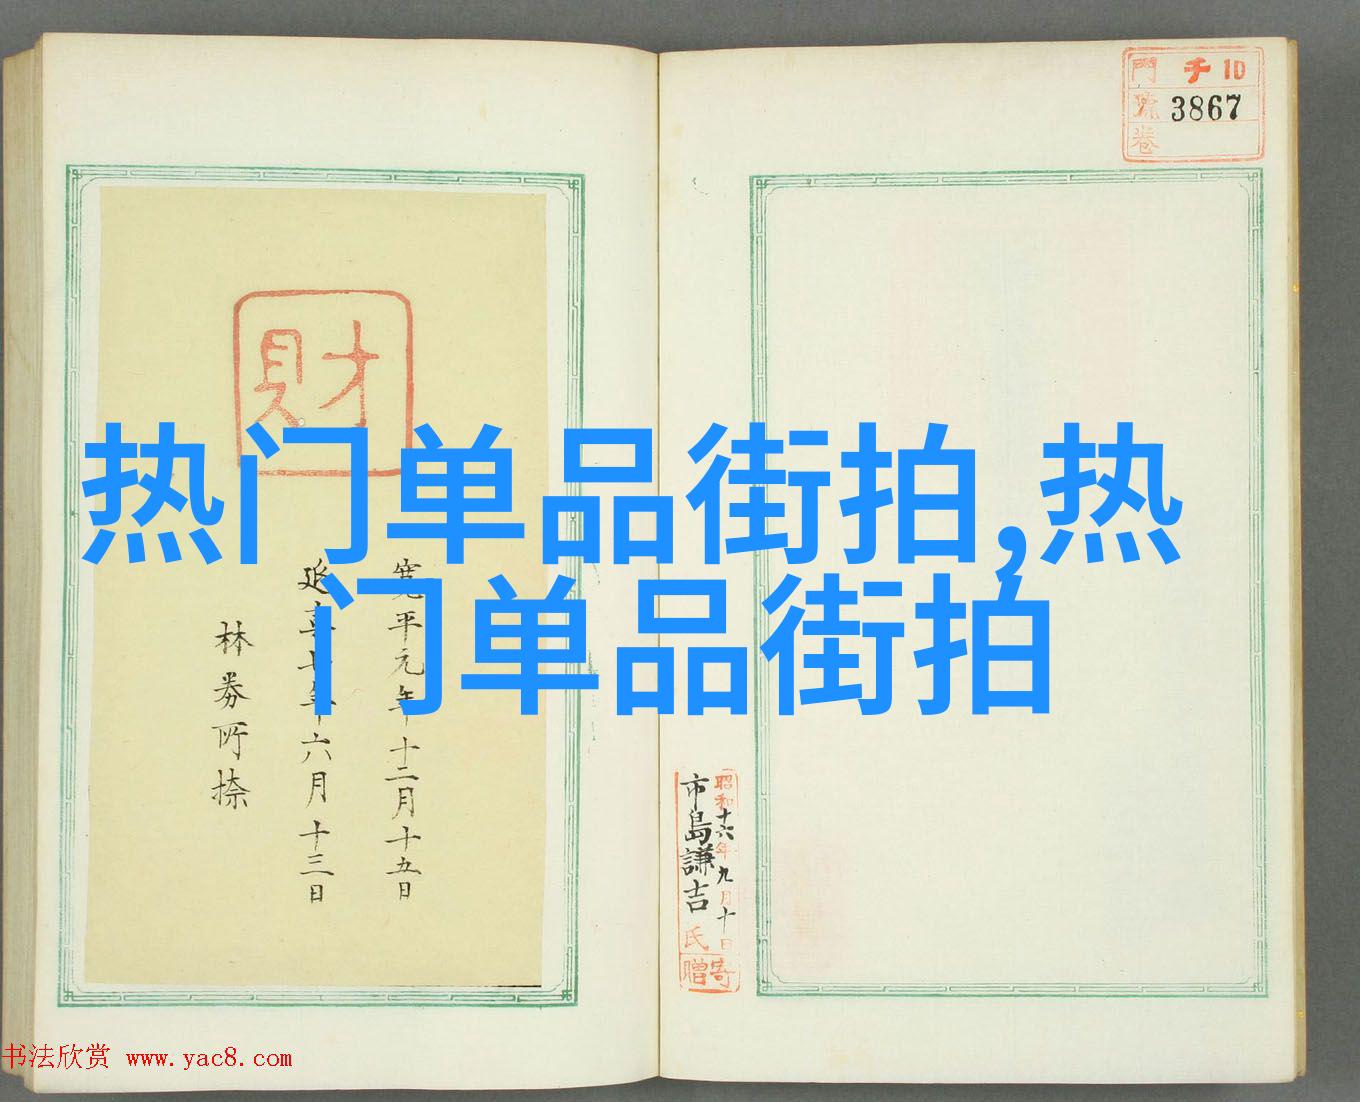 門 千 10
號 3867
卷
財
热门单品街拍,热
门单品街拍
寛平元年十二月十五日
延喜七年十六月十三日
林券所捺
昭和十六年九月十日
市島謙吉氏
寄贈
书法欣赏 www.yac8.com